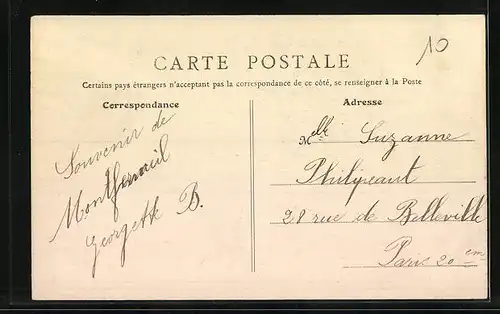 10
CARTE POSTALE
Certains pays étrangers n'acceptant pas la correspondance de ce côté, se renseigner à la Poste
Correspondance
Souvenir de
Montfermeil
Georgette B.
Adresse
Melle Suzanne
Philipeaut
28 rue de Belleville
Paris 20em